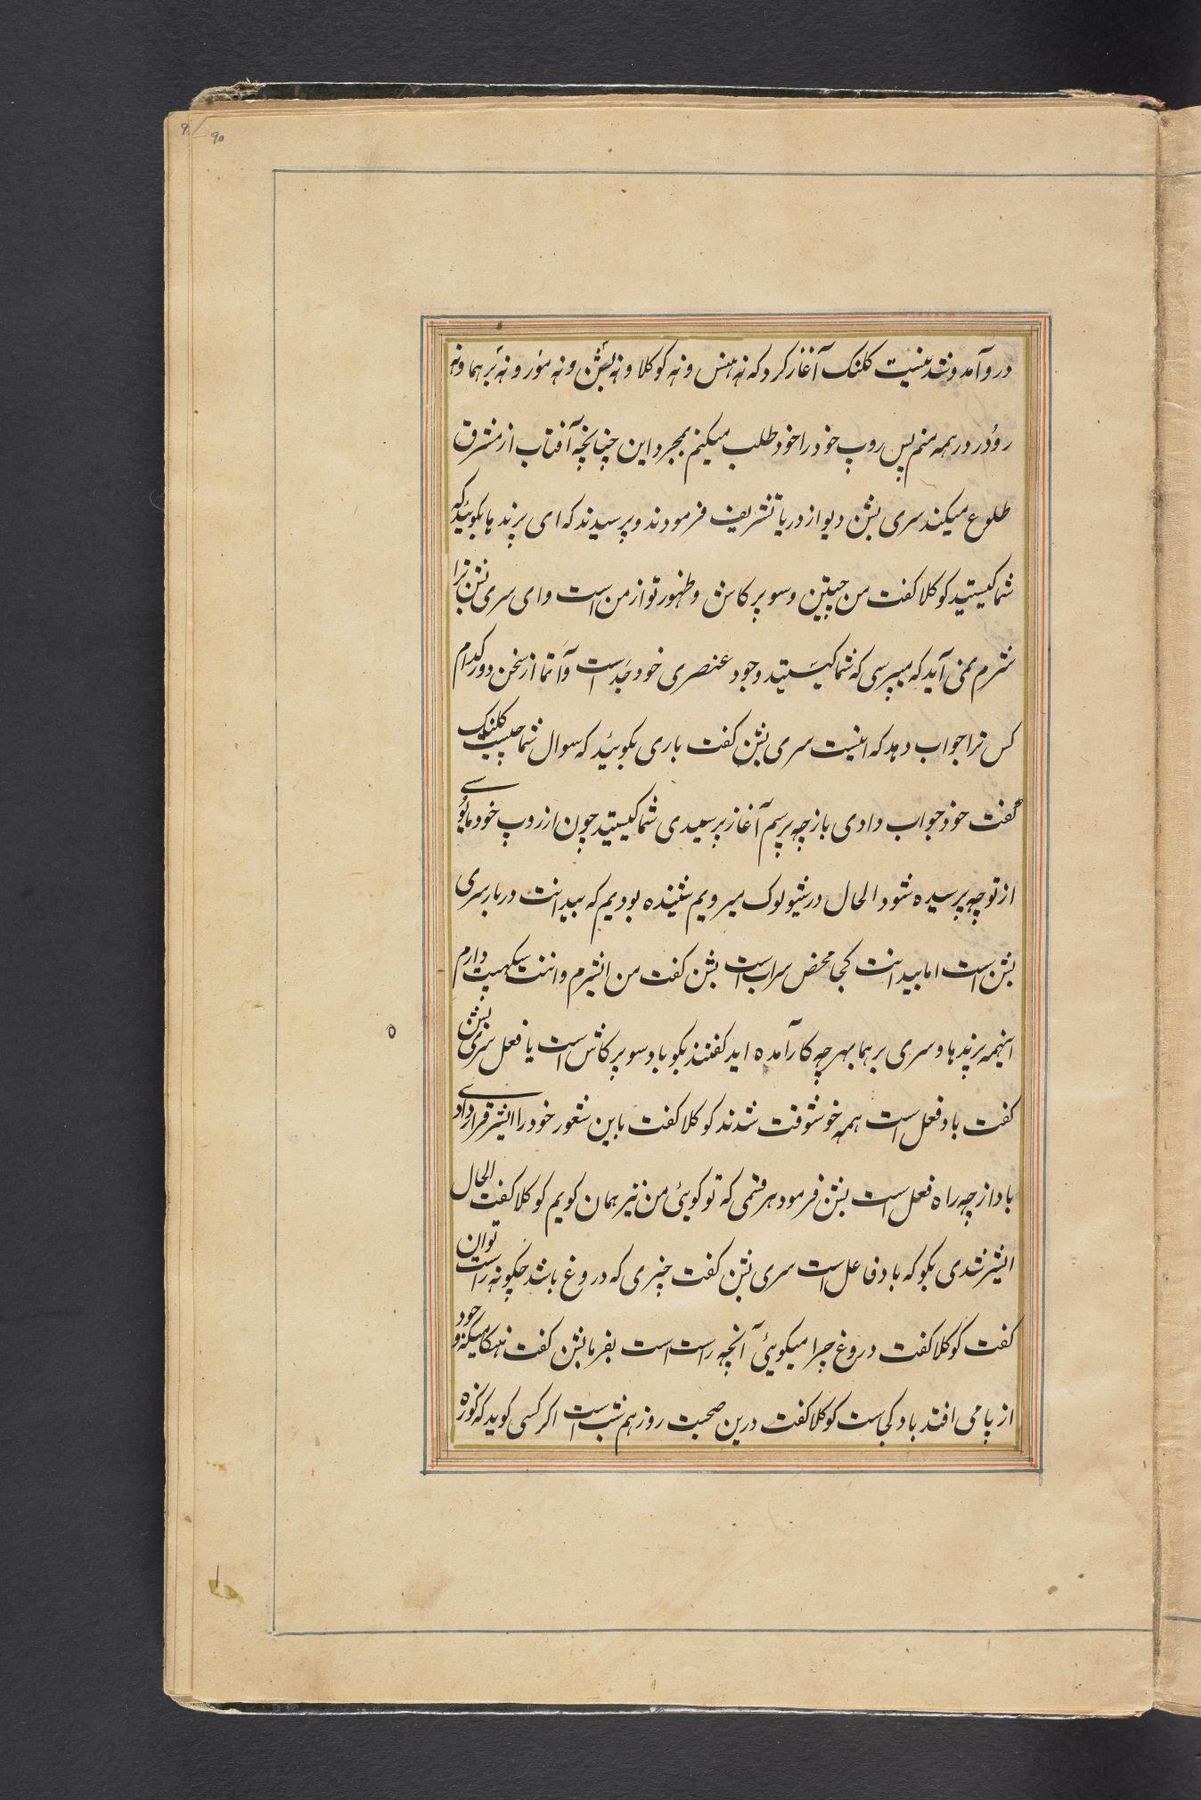 90
در و آمد و نقد نیست کلنک آغاز کرد که نه هنس و نه کوکلا و نه بشن و نه سور و نه برهما و نه
رودر در همه منم پس روپ خود را خود طلب میکنم بمجرد این چنانچه آفتاب از مشرق
طلوع میکند سری بشن دیو از دریا تشریف فرمودند و پرسیدند که ای پرند یا بکوئید که
شما کیستید کوکلا کفت من چیتن و سوپرکاش و ظهور تو از من است و ای سری بشن ترا
شرم نمی آید که میپرسی که شما کیستید وجود عنصری خود جد است و آتما از سخن دور کدام
کس ترا جواب دهد که اینست سری بشن کفت باری بکوئید که سوال شما چیست کلنک
گفت خود جواب دادی باز چه پرسیم آغاز پرسیدی شما کیستید چون از روپ خود
از تو چه پرسیده شود الحال در شیولوک میرویم شنیده بودیم که بیدانت در بار سری
بشن است اما بیدانت کجا محض سراب است بشن کفت من ایشرم و اننت سکهیت دارم
اینهمه پرندها و سری برهما بهر چه کار آمده اید کفتند بکو باد سوپرکاش است یا فعل سری بشن
کفت باد فعل است همه خوشوقت شدند کوکلا کفت باین شعور خود را ایشر قرار دادی
باد از چه راه فعل است بشن فرمود هر قسمی که تو کوئی من نیز همان کویم کوکلا کفت الحال
ایشر شدی بکو که باد فاعل است سری بشن کفت چیزی که دروغ باشد چکونه راست توان
کفت کوکلا کفت دروغ چرا میکوئی آنچه راست است بفرما بشن کفت هنکامیکه وجود
از پا می افتد باد کجاست کوکلا کفت درین صحبت روز هم شب است اکر کسی کوید که کوزه